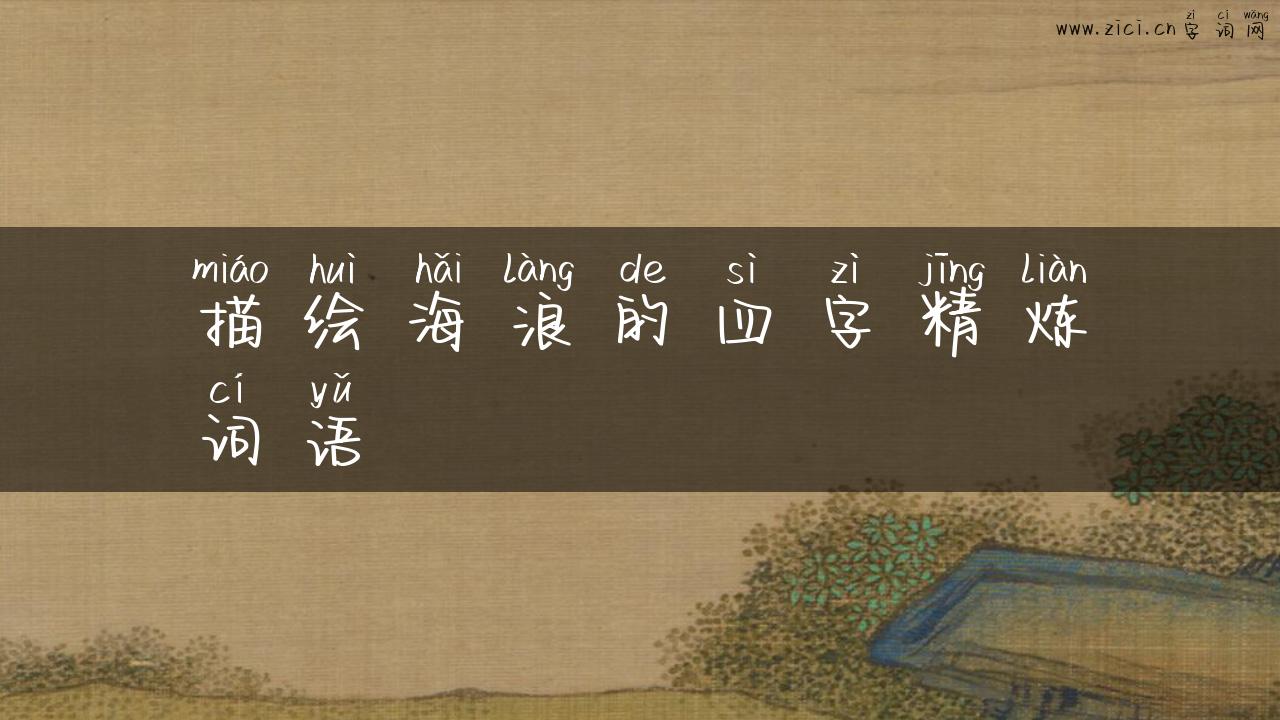 zì cí wǎng
www.zici.cn 字 词 网
miáo huì hǎi làng de sì zì jīng liàn
描 绘 海 浪 的 四 字 精 炼
cí yǔ
词 语